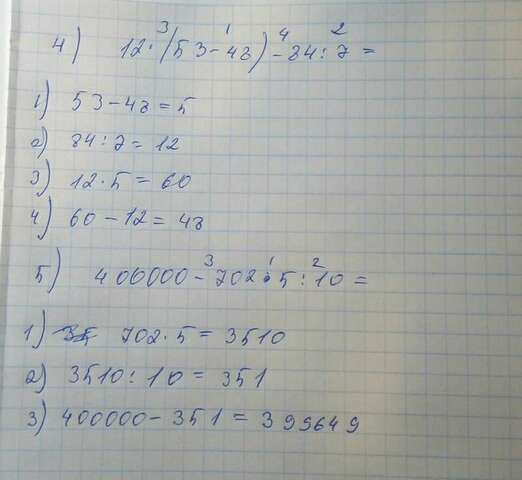 4) 12·(53-48)-84:7=
3 1 4 2
1) 53-48=5
2) 84:7=12
3) 12·5=60
4) 60-12=48
5) 400000-702·5:10=
3 1 2
1) 702·5=3510
2) 3510:10=351
3) 400000-351=399649